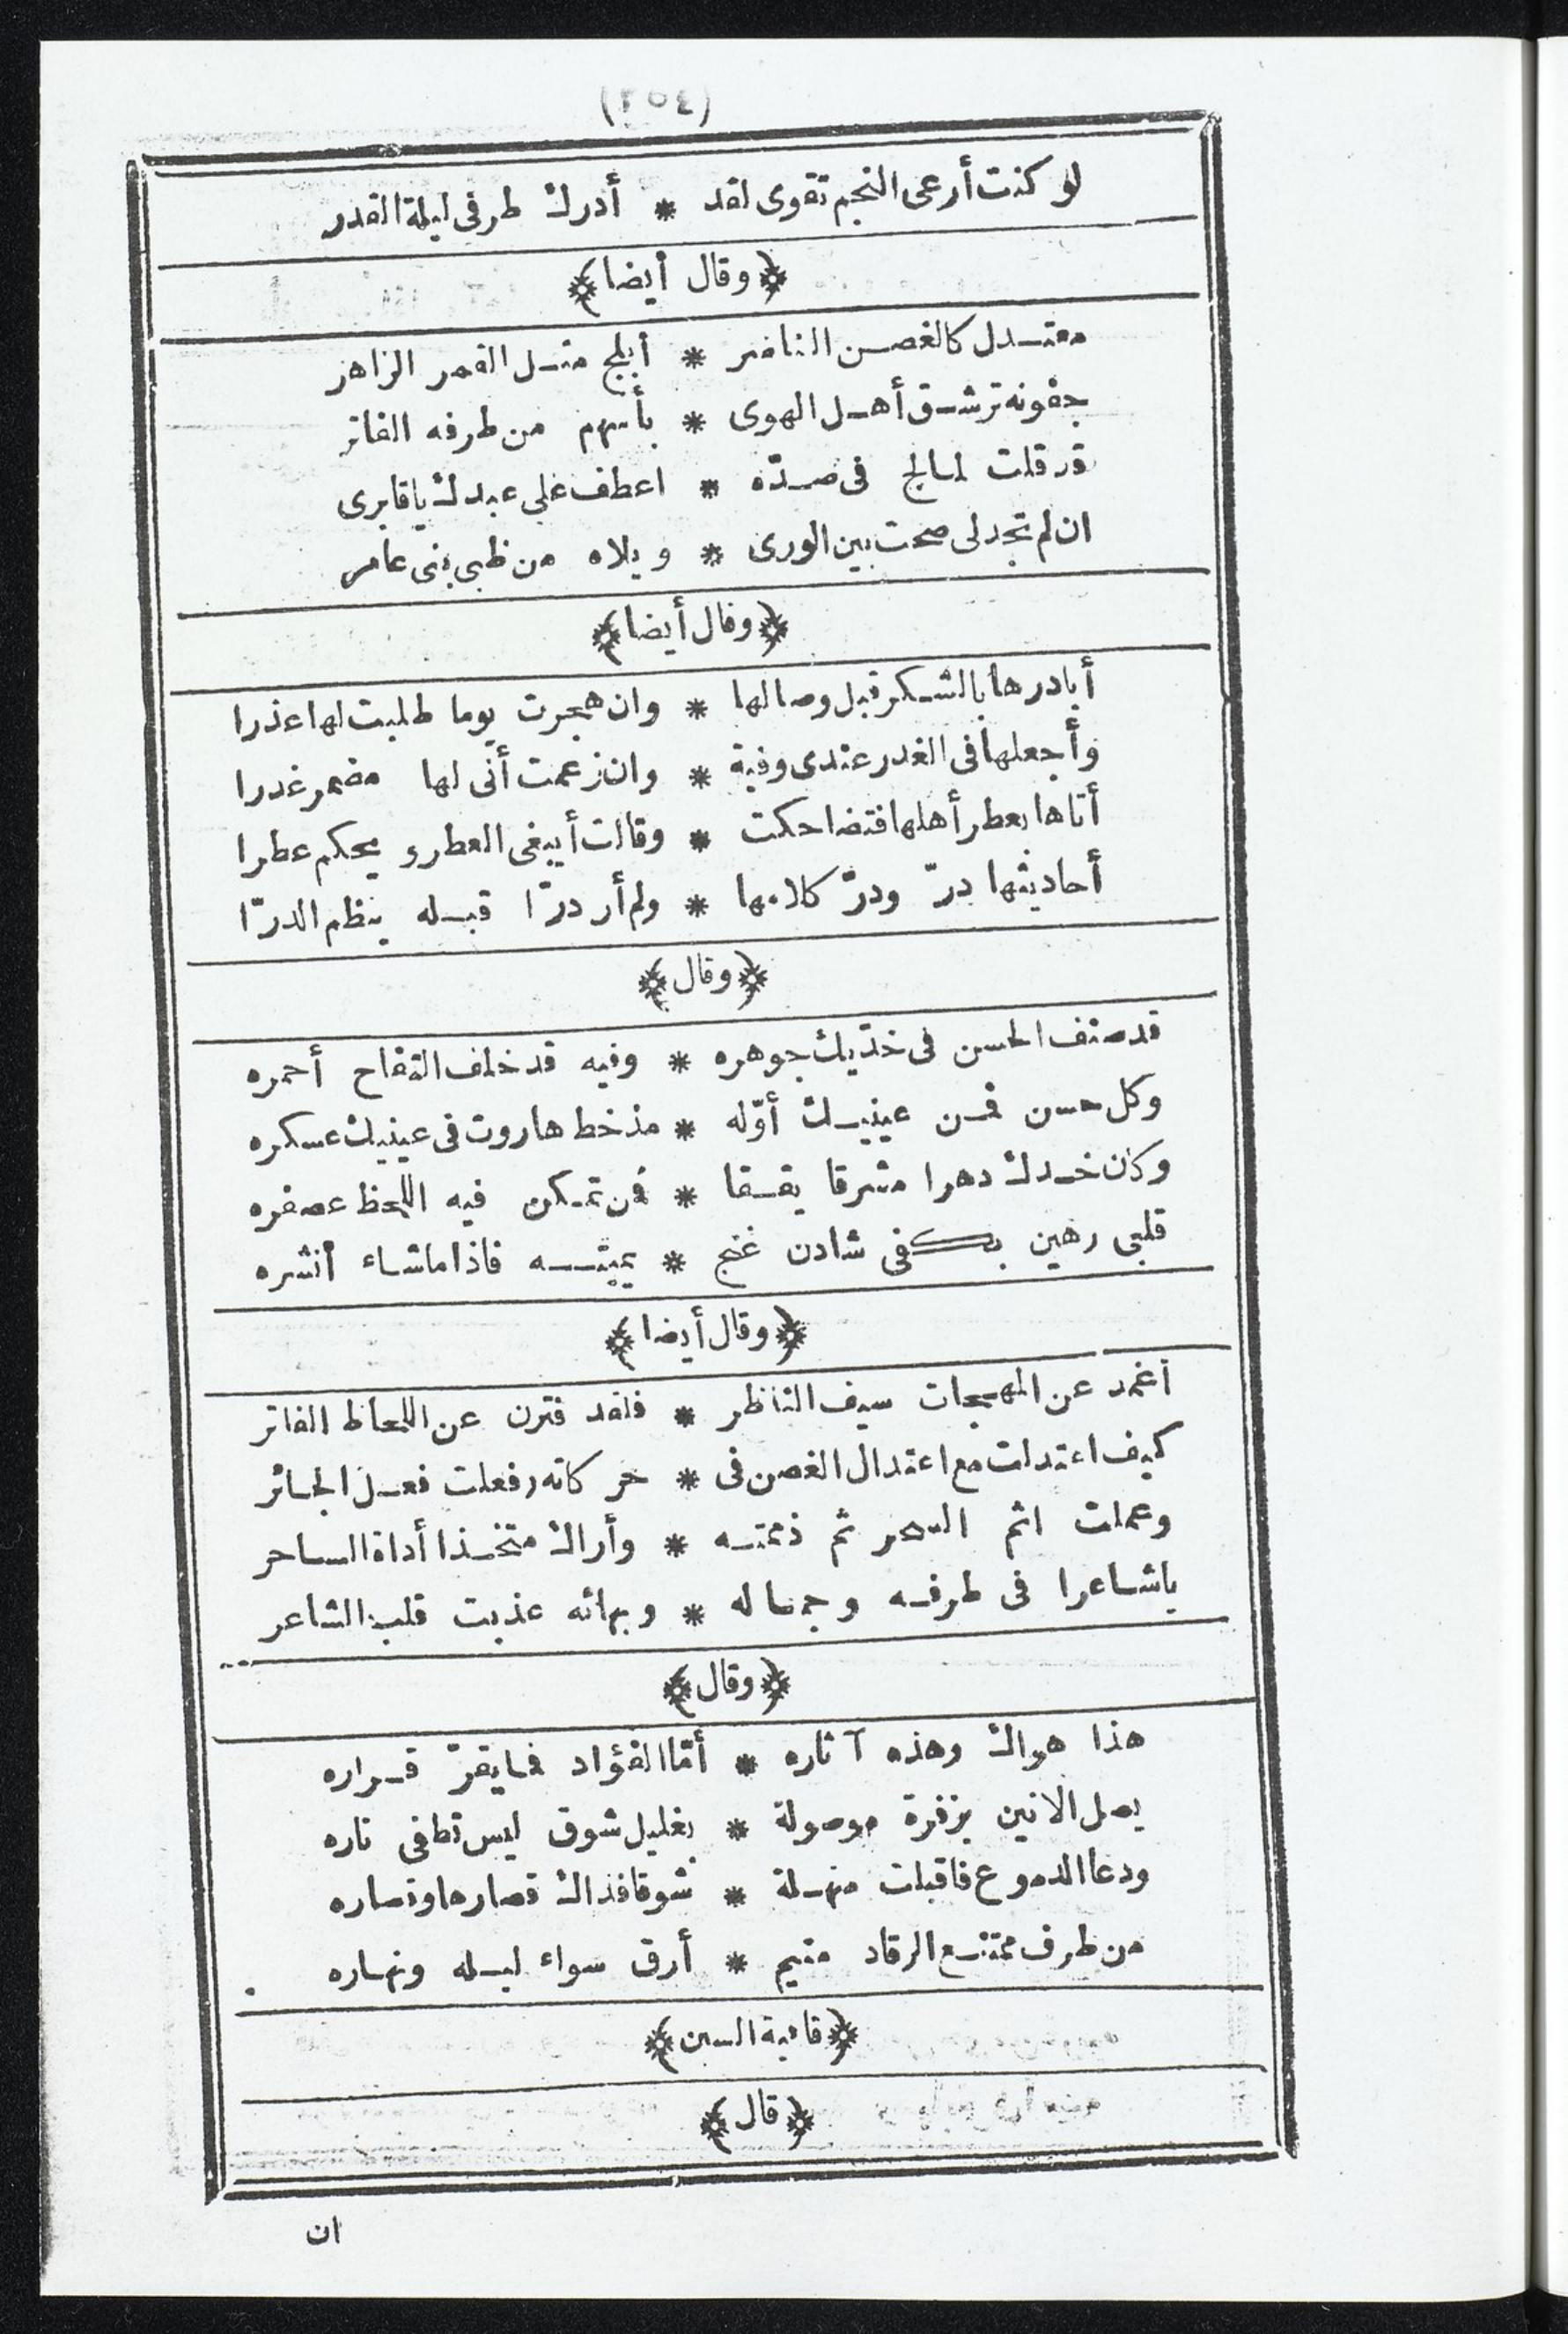 (٢٥٤)
لو كنت أرعى النجم تقوى لقد * أدرك طرفى ليلة القدر
﴿وقال أيضا﴾
معتدل كالغصن الناضر * أبلج مثل القمر الزاهر
جفونه ترشق أهل الهوى * بأسهم من طرفه الفاتر
قد قلت لما لج فى صدّه * اعطف على عبدك ياقابرى
ان لم تجد لى صحت بين الورى * ويلاه من ظبى بنى عامر
﴿وقال أيضا﴾
أبادرها بالشكر قبل وصالها * وان هجرت يوما طلبت لها عذرا
وأجعلها فى الغدر عندى وفية * وان زعمت أنى لها مضمر غدرا
أتاها بعطر أهلها فتضاحكت * وقالت أيبغى العطر ويحكم عطرا
أحاديثها درّ ودرّ كلامها * ولم أر درّا قبله ينظم الدرّا
﴿وقال﴾
قد صنف الحسن فى خدّيك جوهره * وفيه قد خلف التفاح أحمره
وكل حسن فمن عينيك أوّله * مذ خط هاروت فى عينيك عسكره
وكان خدك دهرا مشرقا يققا * فمن تمكن فيه اللحظ عصفره
قلبى رهين بكفى شادن غنج * يميته فاذا ماشاء أنشره
﴿وقال أيضا﴾
أغمد عن المهجات سيف الناظر * فلقد فترن عن اللحاظ الفاتر
كيف اعتدلت مع اعتدال الغصن فى * حركاته وفعلت فعل الجائر
وعملت اثم السحر ثم ذممته * وأراك متخذا أداة الساحر
ياشاعرا فى طرفه وجماله * وبهائه عذبت قلب الشاعر
﴿وقال﴾
هذا هواك وهذه آثاره * أمّا الفؤاد فما يقرّ قراره
يصل الانين بزفرة موصولة * بغليل شوق ليس تطفى ناره
ودعا الدموع فاقبلت منهلة * شوقا فذاك قصارها وقصاره
من طرف ممتنع الرقاد متيم * أرق سواء ليله ونهاره
﴿قافية السين﴾
﴿قال﴾
ان